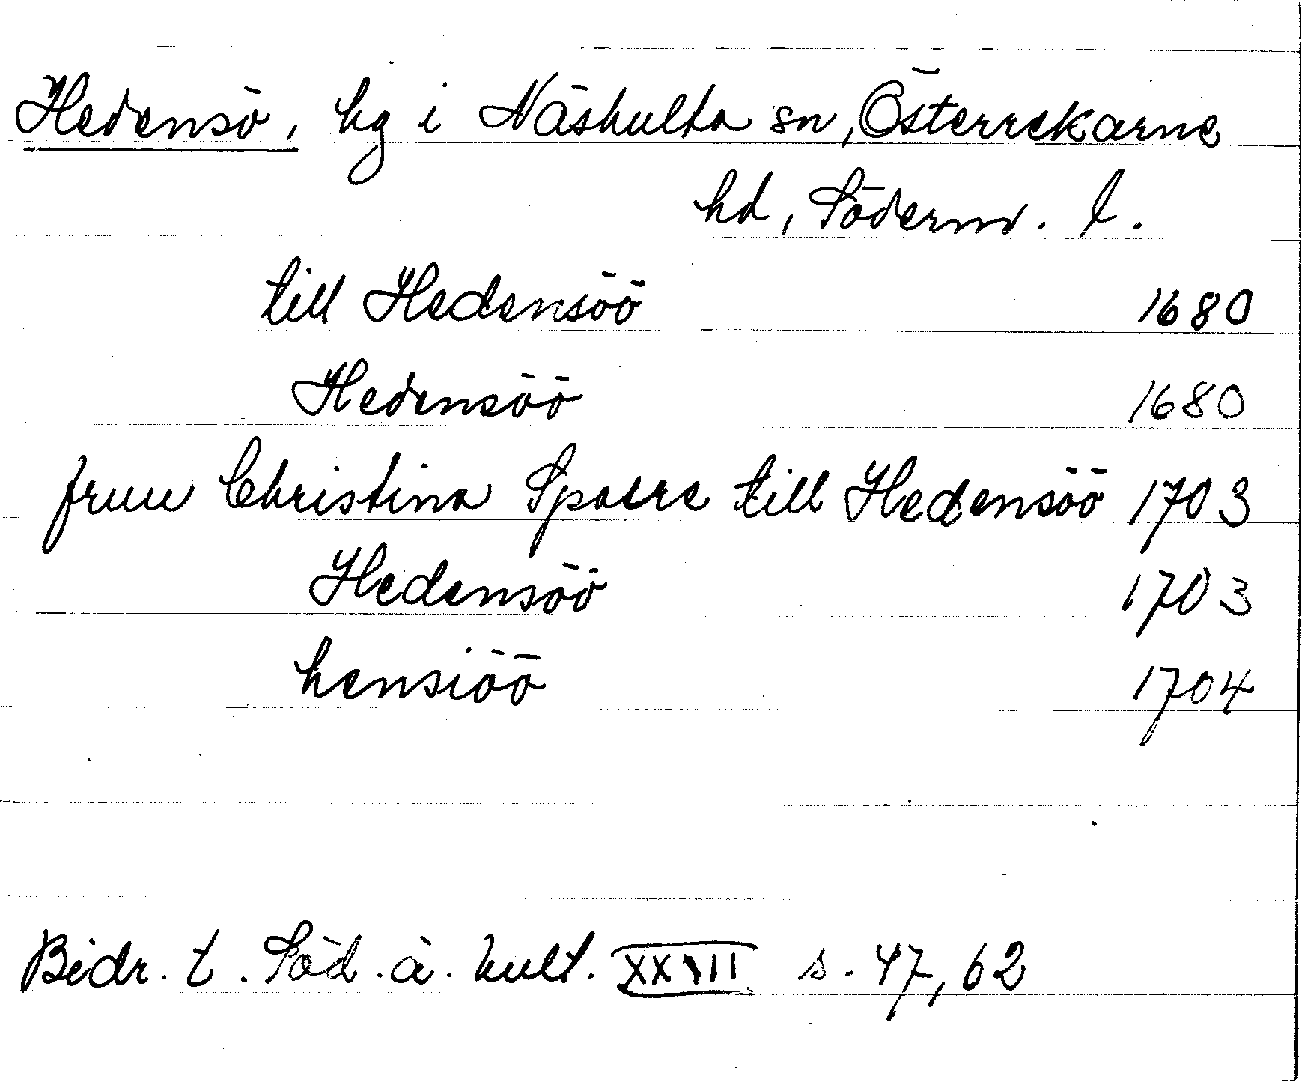 Hedensö, hg i Näshulta sn, Österrekarne
hd, Söderm. l.
till Hedensöö 1680
Hedensöö 1680
fruu Christina Sparre till Hedensöö 1703
Hedensöö 1703
hensiöö 1704
Bidr. t. Söd. ä. kult. XXVII s. 47, 62